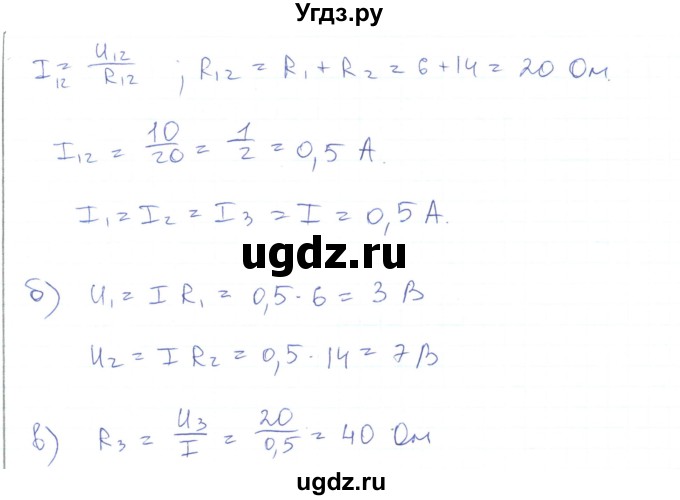 Угдз.ру
I₁₂ = U₁₂/R₁₂ ; R₁₂ = R₁ + R₂ = 6 + 14 = 20 Ом.
I₁₂ = 10/20 = 1/2 = 0,5 А.
I₁ = I₂ = I₃ = I = 0,5 А.
ugdz.ru
б) U₁ = I R₁ = 0,5 · 6 = 3 В
U₂ = I R₂ = 0,5 · 14 = 7 В
в) R₃ = U₃/I = 20/0,5 = 40 Ом
ugdz.ru